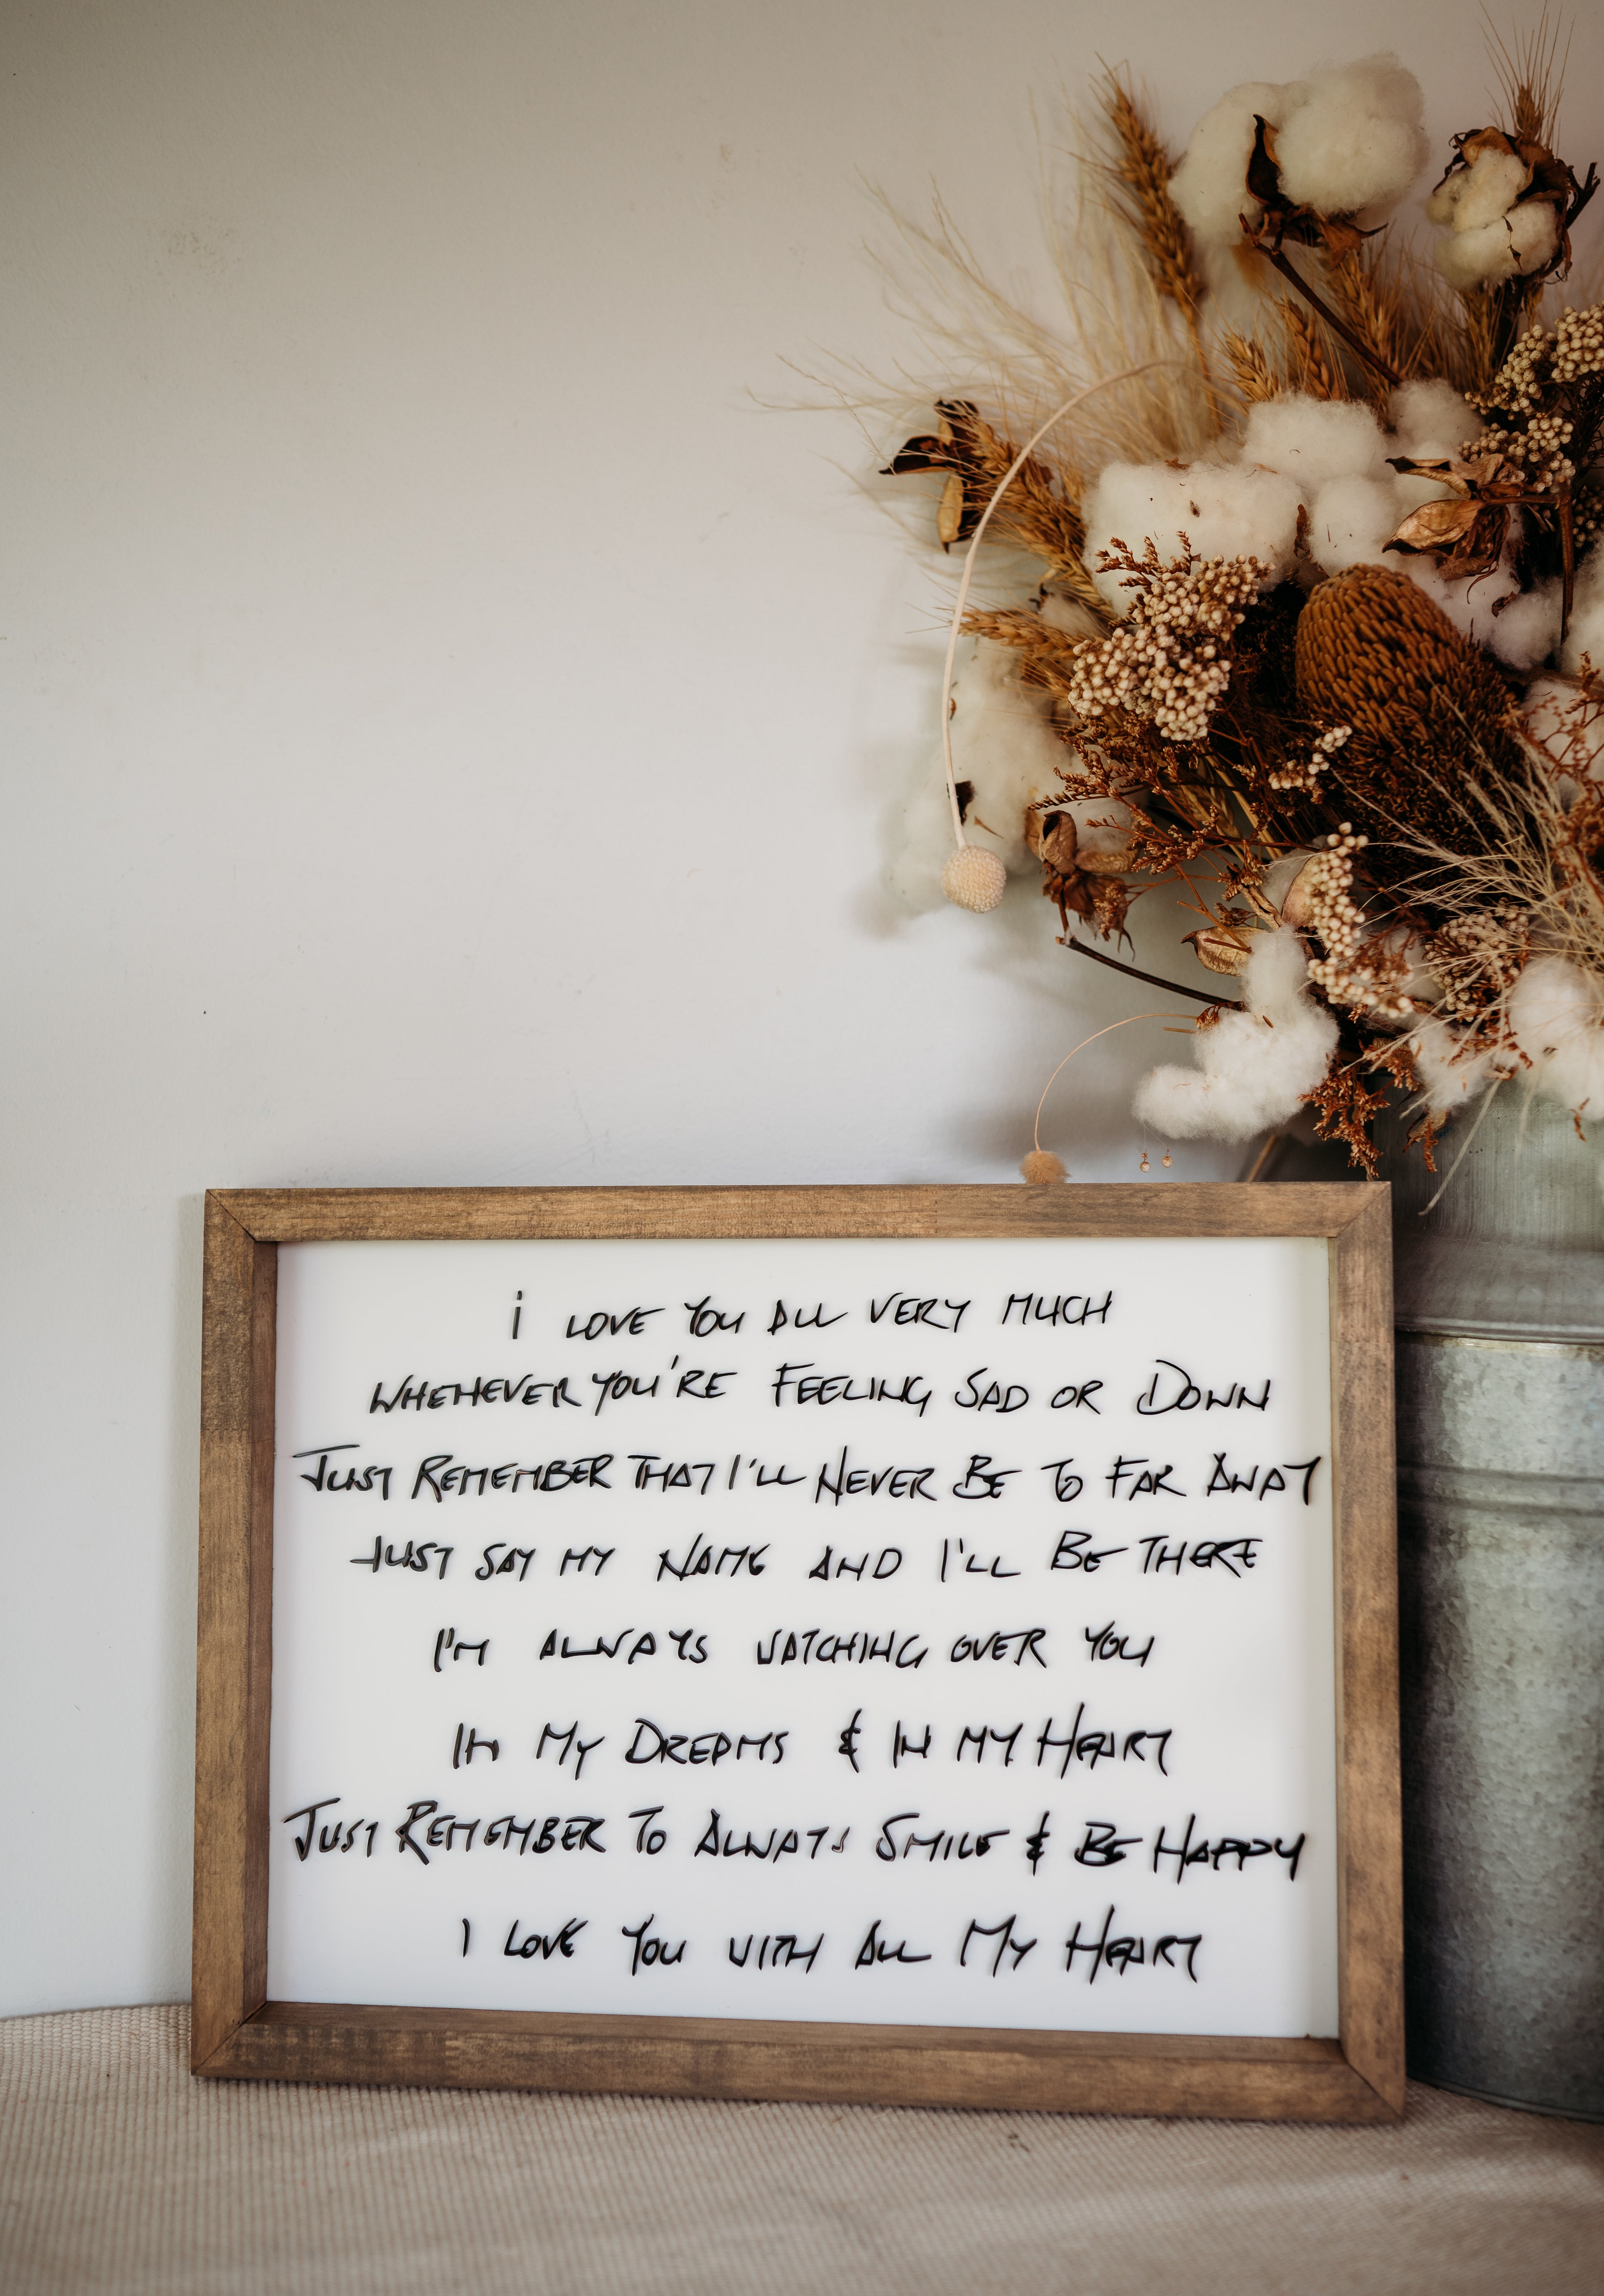 i LOVE YOU ALL VERY MUCH
WHENEVER YOU'RE FEELING SAD OR DOWN
JUST REMEMBER THAT I'LL NEVER BE TO FAR AWAY
JUST SAY MY NAME AND I'LL BE THERE
I'M ALWAYS WATCHING OVER YOU
IN MY DREAMS & IN MY HEART
JUST REMEMBER TO ALWAYS SMILE & BE HAPPY
I LOVE YOU WITH ALL MY HEART